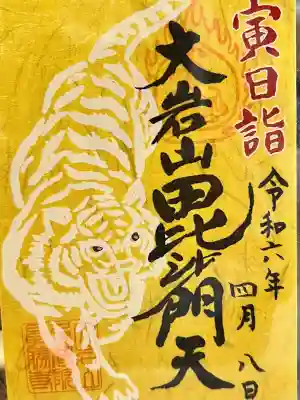 寅日詣
令和六年
四月八日
大岩山毘沙門天